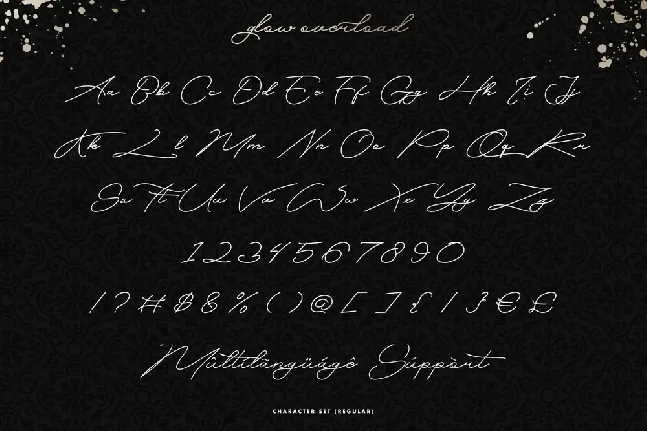 glow overload
Aa Bb Cc Dd Ee Ff Gg Hh Ii Jj
Kk Ll Mm Nn Oo Pp Qq Rr
Ss Tt Uu Vv Ww Xx Yy Zz
1234567890
!?#$&%()@[]{/}€£
Mültilängüágê Súppòrt
CHARACTER SET (REGULAR)